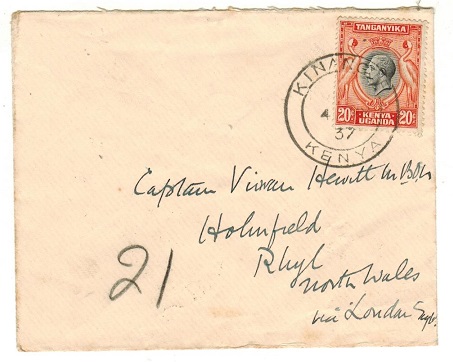 TANGANYIKA
20c KENYA 20c
UGANDA
KENYA
37
Captain Vivian Hewitt
Holmfield
Rhyl
North Wales
via London
21